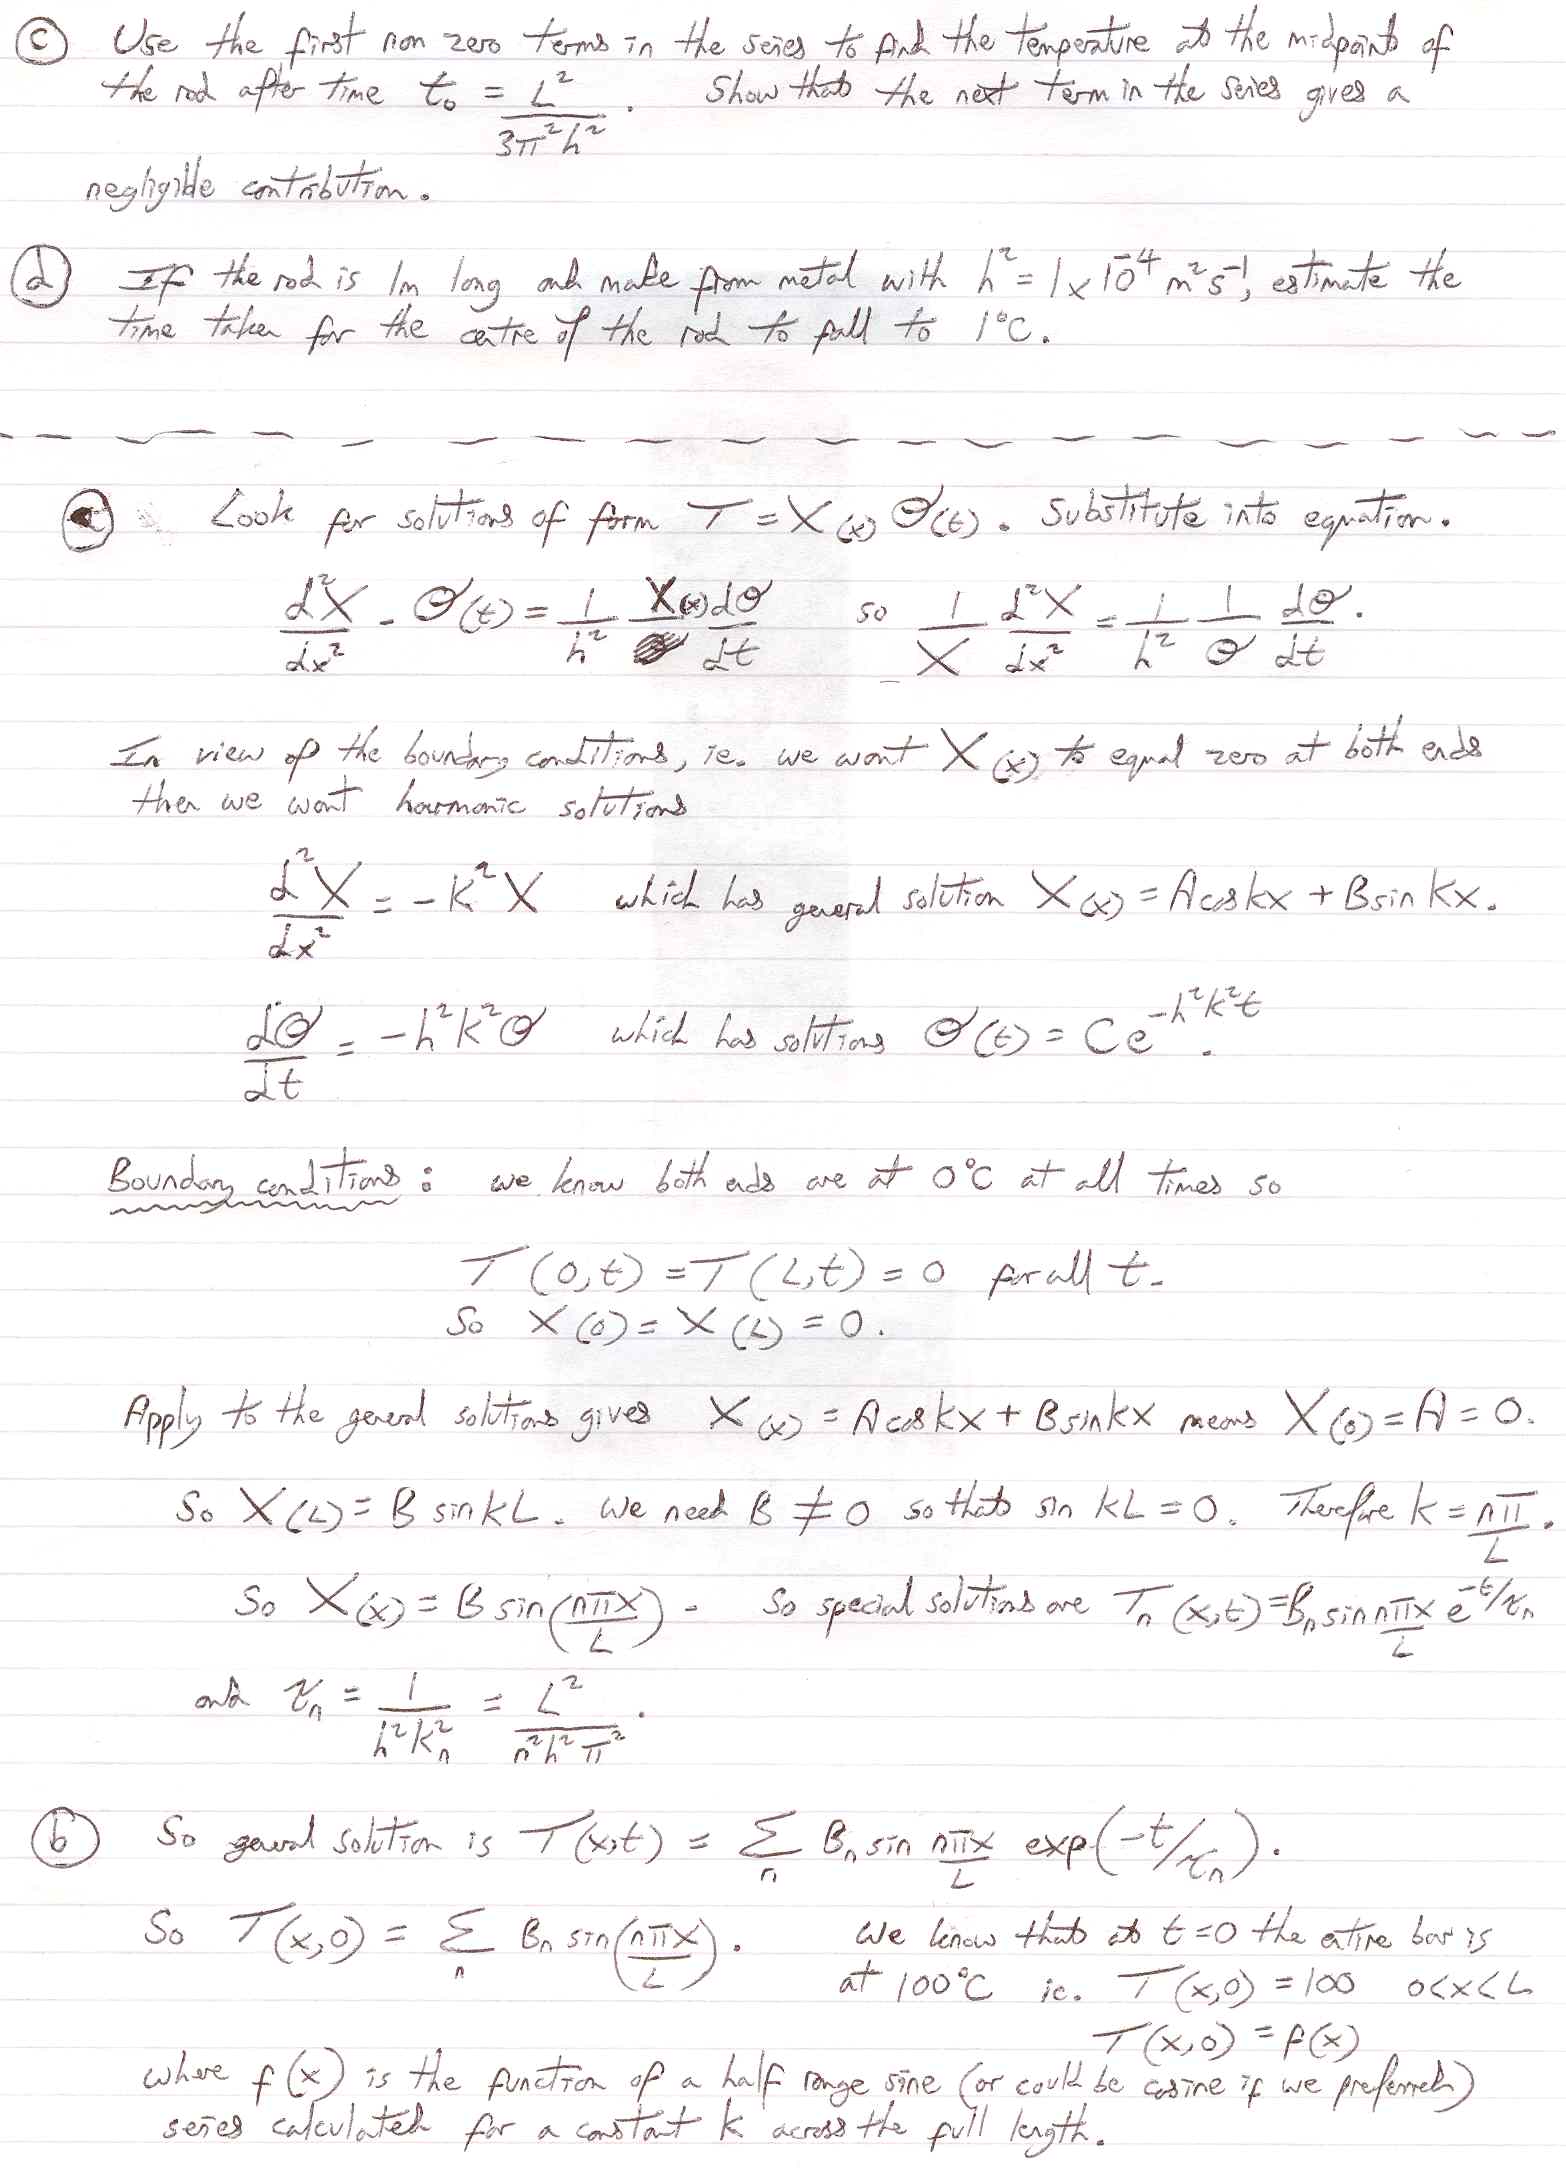 (c) Use the first non zero terms in the series to find the temperature at the midpoint of
the rod after time t₀ = L²/3π²h². Show that the next term in the series gives a
negligible contribution.
(d) If the rod is 1m long and made from metal with h² = 1x10⁻⁴ m²s⁻¹, estimate the
time taken for the centre of the rod to fall to 1°C.
Look for solutions of form T = X(x) Θ(t). Substitute into equation.
d²X/dx² . Θ(t) = 1/h² X(x) dΘ/dt so 1/X d²X/dx² = 1/h² 1/Θ dΘ/dt.
In view of the boundary conditions, ie. we want X(x) to equal zero at both ends
then we want harmonic solutions
d²X/dx² = -k²X which has general solution X(x) = A cos kx + B sin kx.
dΘ/dt = -h²k²Θ which has solutions Θ(t) = Ce^(-h²k²t).
Boundary conditions : we know both ends are at 0°C at all times so
T(0,t) = T(L,t) = 0 for all t.
So X(0) = X(L) = 0.
Apply to the general solutions gives X(x) = A cos kx + B sin kx means X(0) = A = 0.
So X(L) = B sin kL. We need B ≠ 0 so that sin kL = 0. Therefore k = nπ/L.
So X(x) = B sin(nπx/L). So special solutions are Tₙ(x,t) = Bₙ sin nπx/L e^(-t/τₙ)
and τₙ = 1/h²kₙ² = L²/n²h²π².
(b) So general solution is T(x,t) = Σₙ Bₙ sin nπx/L exp(-t/τₙ).
So T(x,0) = Σₙ Bₙ sin(nπx/L). We know that at t=0 the entire bar is
at 100°C ie. T(x,0) = 100 0<x<L
T(x,0) = f(x)
where f(x) is the function of a half range sine (or could be cosine if we preferred)
series calculated for a constant k across the full length.